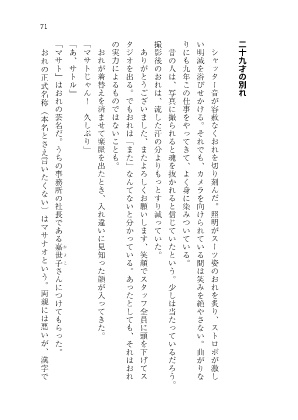 71
二十九才の別れ
シャッター音が容赦なくおれを切り刻んだ。照明がスーツ姿のおれを炙り、ストロボが激し
い明滅を浴びせかける。それでも、カメラを向けられている間は笑みを絶やさない。曲がりな
りにも九年この仕事をやってきて、よく身に染みついている。
昔の人は、写真に撮られると魂を抜かれると信じていたという。少しは当たっているだろう。
撮影後のおれは、流した汗の分よりもっとすり減っていた。
ありがとうございました、またよろしくお願いします、笑顔でスタッフ全員に頭を下げてス
タジオを出る。でもおれは「また」なんてないと分かっている。あったとしても、それはおれ
の実力によるものではないことも。
おれが着替えを済ませて楽屋を出たとき、入れ違いに見知った顔が入ってきた。
「マサトじゃん！　久しぶり」
「あ、サトル」
「マサト」はおれの芸名だ。うちの事務所の社長である喜世子さんにつけてもらった。
おれの正式名称（本名とさえ言いたくない）はマサナオという。両親には悪いが、漢字で